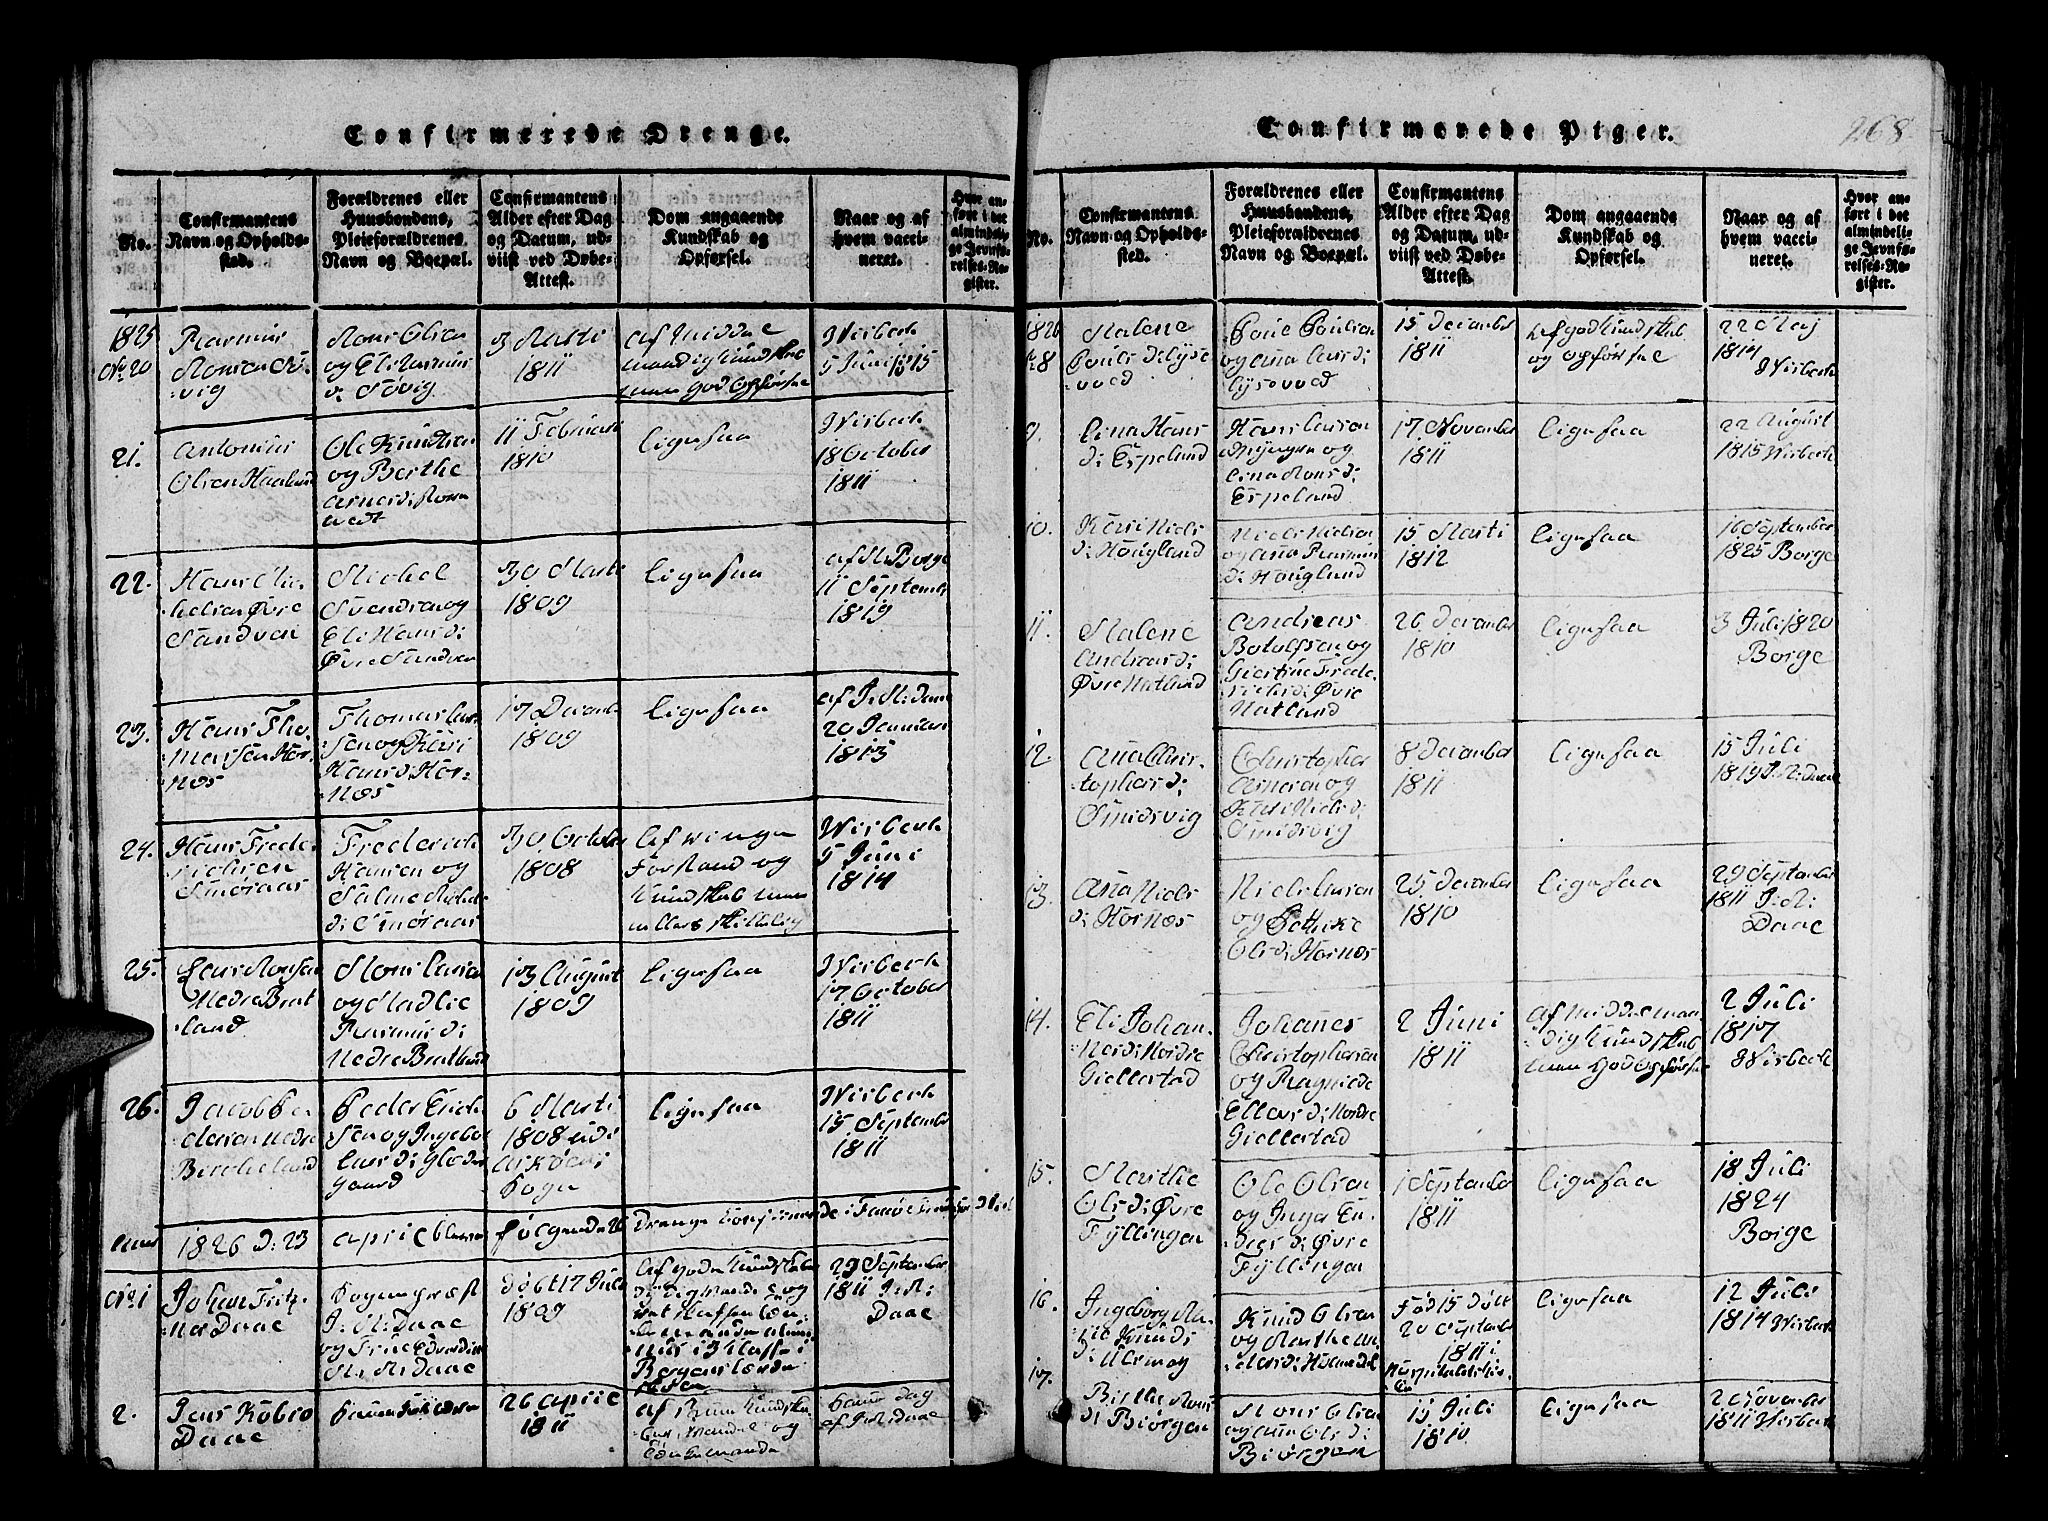 Confirmerede Drenge.
No.
Confirmantens
Navn og Opholds-
sted.
Forældrenes eller
Huusbondens,
Pleieforældrenes
Navn og Boepæl.
Confirmantens
Alder efter Dag
og Datum, ud-
viist ved Døbe-
Attest.
Dom angaaende
Kundskab og
Opførsel.
Naar og af
hvem vacci-
neret.
Hvor an-
ført i det
almindeli-
ge Jevnfø-
relses-Re-
gister.
1825
No. 20
Rasmus
Monsen Sø-
vig
Mons Olsen
og Eli Rasmus
d. Søvig
3 Marti
1811
af midde
maadig Kundskab
men god Opførsel
Wisbech
5 Juni 1815
21.
Antonius
Olsen Haaland
Ole Knudsen
og Berthe
11 Februari
1810
ligesaa
Wisbech
18 October
1811
22.
Hans Mic-
helsen Øvre
Sandven
Michel
Svendsen og
Eli Hans d:
Øvre Sandven
30 Marti
1809
ligesaa
af M Borge
11 Septembr
1819
23.
Hans Tho-
mesen Hor-
næs
Thomas Lar-
sen og Kari
Hans d: Hor-
næs
17 December
1809
ligesaa
af J. M: Daae
20 Januari
1813
24.
Hans Frede-
richsen
Smøraas
Frederich
Hansen og
Salme Michels
d: Smøraas
30. October
1808
Af ringe
Forstand og
Kundskab men
ellers skikkelig
Wisbech
5 Juni
1814
25.
Lars Monsen
Nedre Brat
land
Mons Larsen
og Madlie
Rasmus d:
Nedre Bratland
13 August
1809
ligesaa
Wisbech
17 October
1811
26.
Jacob Pe-
dersen Nedre
Birkeland
Peder Erich
sen og Ingebor
Lars d:
gaard
6 Marti
1808 udi
Askøens
Sogn
ligesaa
Wisbech
15 September
1811
Anno
1826 d: 23
April bleve
følgende 26
Drenge Confirmerede i Fanøe
No. 1
Johan Fritz-
ner Daae
Sogneprest
J: M: Daae
og Frue
M. Daae
døbt 17 Juli
1809
29 September
1811 J: M:
Daae
2.
Jens Kobro
Daae
Samme Forældre
26 April
1811
Samme dag
af J: M: Daae
Confirmerede Piger.
268
No.
Confirmantens
Navn og Opholds-
sted.
Forældrenes eller
Huusbondens,
Pleieforældrenes
Navn og Boepæl.
Confirmantens
Alder efter Dag
og Datum, ud-
viist ved Døbe-
Attest.
Dom angaaende
Kundskab og
Opførsel.
Naar og af
hvem vacci-
neret.
Hvor an-
ført i det
almindeli-
ge Jevnfø-
relses-Re-
gister.
1826
No 8
Malene
Pouls d: Lyse
Poul Poulsen
og Anna Lars d:
15 December
1811
Af god Kundskab
og opførsel
22 Maj
1814
Wisbech
9.
Lina Hans
d: Espeland
Hans Larsen
og
Lina Mons d:
Espeland
17. November
1811
ligesaa
22 August
1815 Wisbech
10.
Kari Niels
d: Hougland
Niels Nielsen
og Anna Rasmus
d: Hougland
15 Marti
1812
ligesaa
16 September
1825 Borge
11.
Malene
Andreas d:
Øvre Hatland
Andreas
Botolfsen og
Giertrue Frede-
richs d: Øvre
Hatland
26 December
1810
ligesaa
3 Juli 1820
Borge
12.
Anna Chris-
tophers d:
Smidsvig
Christopher
Arnesen og
Kari Niels d:
Smidsvig
8 December
1811
ligesaa
15 Juli
1819 J. M: Daae
13.
Anna Niels
d: Hornæs
Niels Larsen
og
Ols d: Hornæs
25 December
1810
ligesaa
29 September
1811 J: M:
Daae
14.
Eli Johan-
nes d: Nordre
Giellestad
Johannes
Christophersen
og Ragnilde
Ellers d: Nordre
Giellestad
2 Juni
1811
af middelmaa
dig Kundskab
men god opførsel
2 Juli
1817
Wisbech
15.
Marthe
Ols d: Øvre
Fyllingen
Ole Olsen
og Inger
d: Øvre
Fyllingen
1 September
1811
ligesaa
18 Juli
1824
Borge
16.
Ingeborg Ma-
rie Knuds
d: Ulsmog
Knud Olsen
og Marthe
Fød 15 Døbt
20 September
1811 i
ligesaa
12 Juli
1814 Wisbech
17.
Birthe Mons
d: Biørgen
Mons Olsen
og Anne Ols d:
Biørgen
15 Juli
1810
ligesaa
November
1811 Wisbech